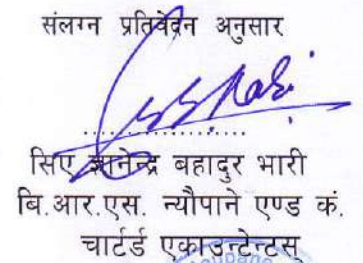 संलग्न प्रतिवेदन अनुसार
....................
सिए ज्ञानेन्द्र बहादुर भारी
बि.आर.एस. न्यौपाने एण्ड कं.
चार्टर्ड एकाउन्टेन्टस